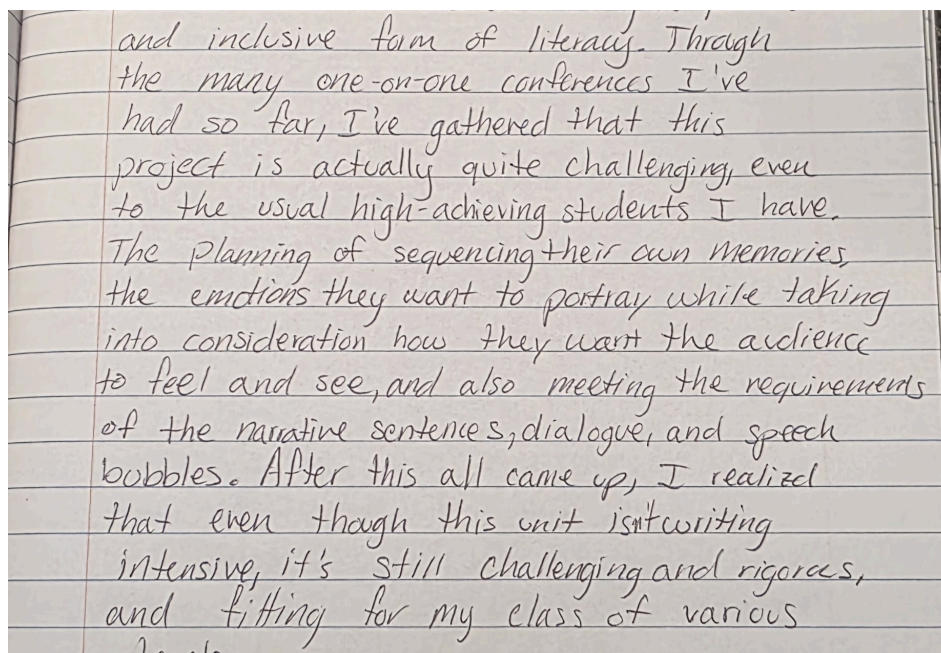 and inclusive form of literacy. Through
the many one-on-one conferences I've
had so far, I've gathered that this
project is actually quite challenging, even
to the usual high-achieving students I have.
The planning of sequencing their own memories,
the emotions they want to portray while taking
into consideration how they want the audience
to feel and see, and also meeting the requirements
of the narrative sentences, dialogue, and speech
bubbles. After this all came up, I realized
that even though this unit isn't writing
intensive, it's still challenging and rigorous,
and fitting for my class of various